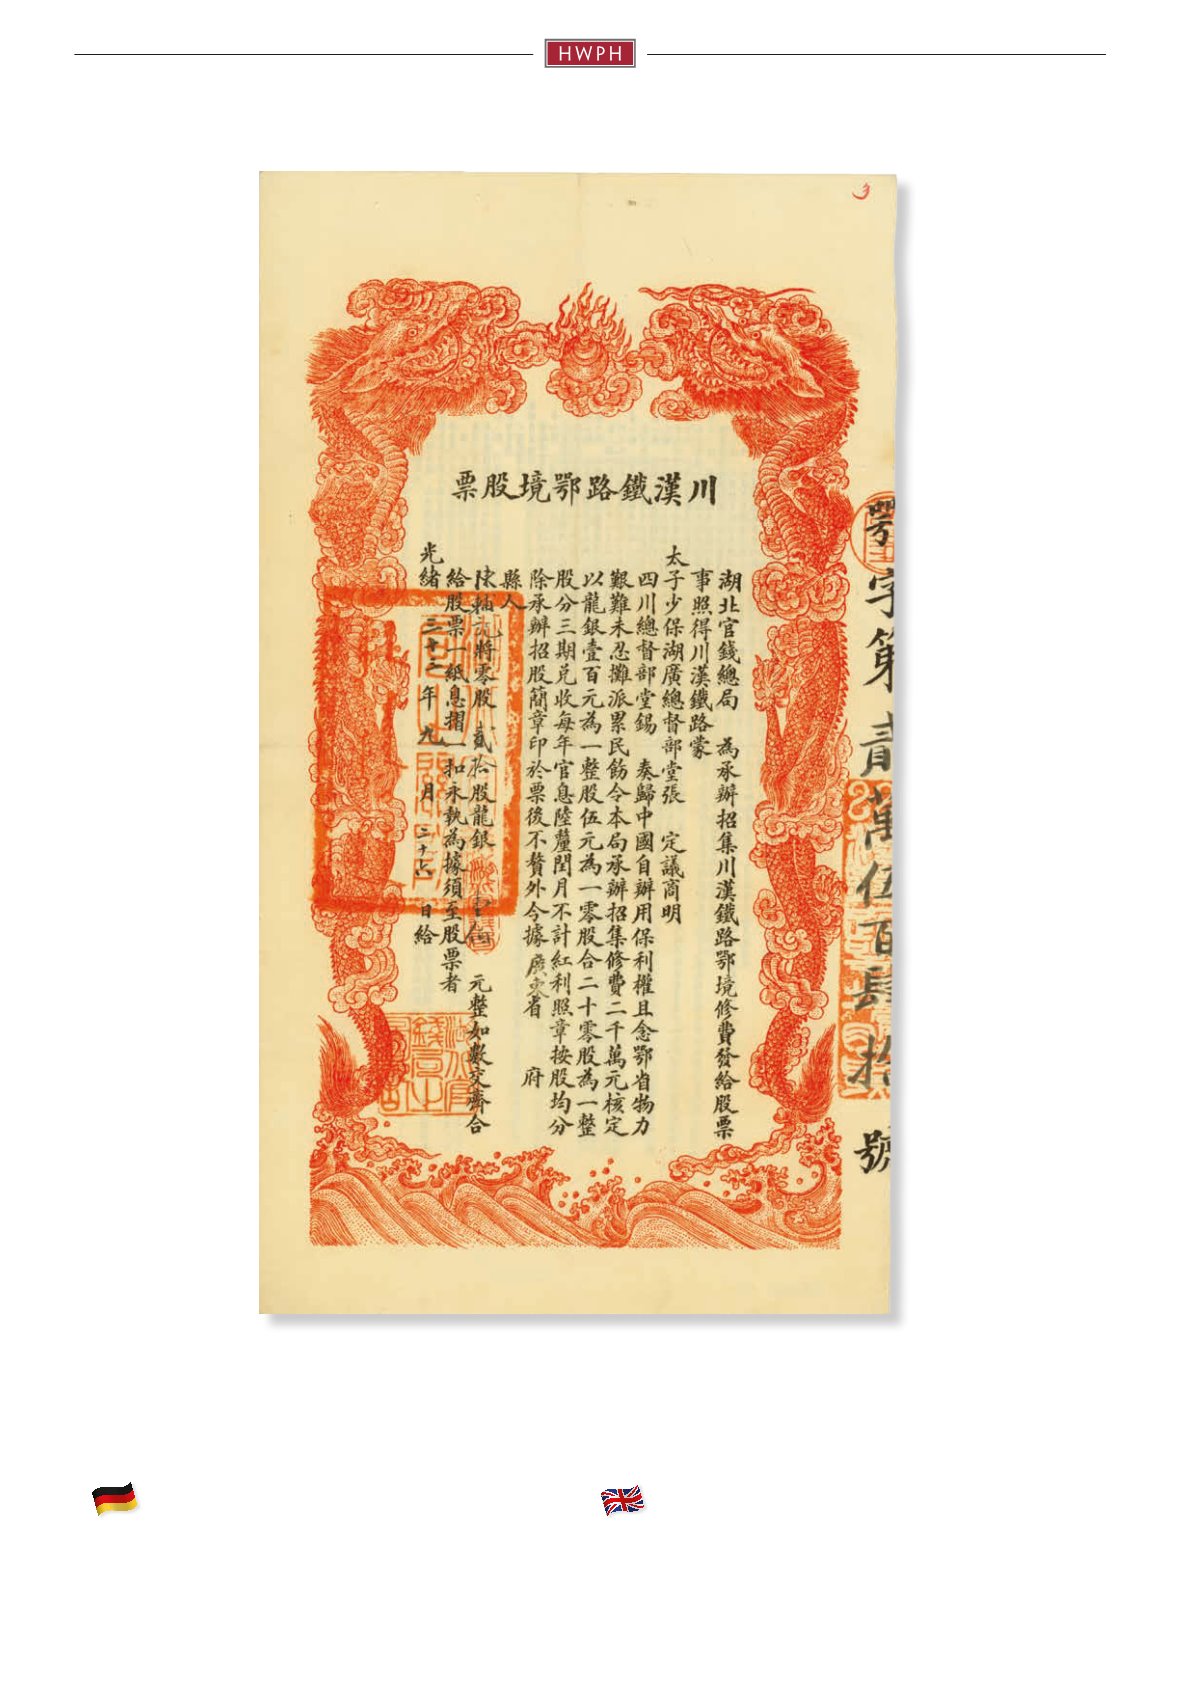 HWPH
川漢鐵路鄂境股票
鄂字第貳萬伍百肆拾 號
湖北官錢總局 為承辦招集川漢鐵路鄂境修費發給股票
事照得川漢鐵路蒙
太子少保湖廣總督部堂張 定議商明
四川總督部堂錫 奏歸中國自辦用保利權且念鄂省物力
艱難未忍攤派累民飭令本局承辦招集修費二千萬元核定
以龍銀壹百元為一整股伍元為一零股合二十零股為一整
股分三期兌收每年官息陸釐閏月不計紅利照章按股均分
除承辦招股簡章印於票後不贅外今據廣東省 府
縣人
陳 將零股 貳拾股龍銀 元整如數交齊合
給股票一紙息摺一扣永執為據須至股票者
光緒三十二年九月二十六日給